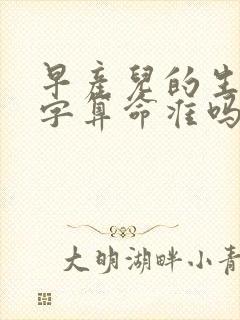 早产兒的生
字算命准吗
大明湖畔小青